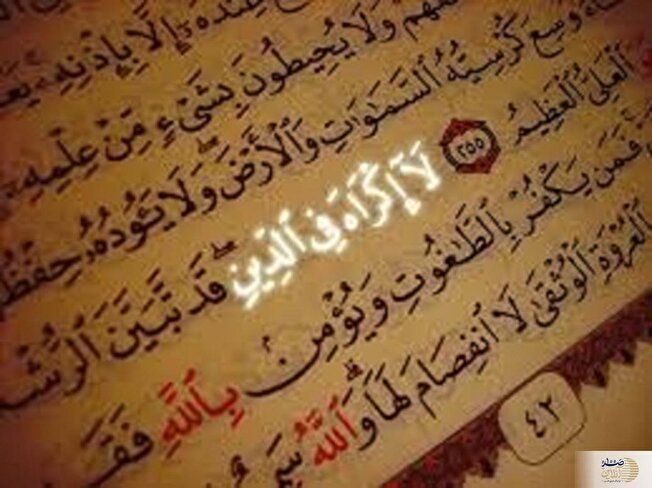 عِندَهُۥٓ إِلَّا بِإِذْنِهِۦ
وَلَا يُحِيطُونَ بِشَىْءٍ مِّنْ عِلْمِهِۦٓ
وَسِعَ كُرْسِيُّهُ ٱلسَّمَـٰوَٰتِ وَٱلْأَرْضَ وَلَا يَـُٔودُهُۥ حِفْظُ
ٱلْعَلِىُّ ٱلْعَظِيمُ ٢٥٥ لَآ إِكْرَاهَ فِى ٱلدِّينِ قَد تَّبَيَّنَ ٱلرُّشْ
فَمَن يَكْفُرْ بِٱلطَّـٰغُوتِ وَيُؤْمِنۢ بِٱللَّهِ فَقَ
ٱلْعُرْوَةِ ٱلْوُثْقَىٰ لَا ٱنفِصَامَ لَهَا وَٱللَّهُ سَمِ
٤٢